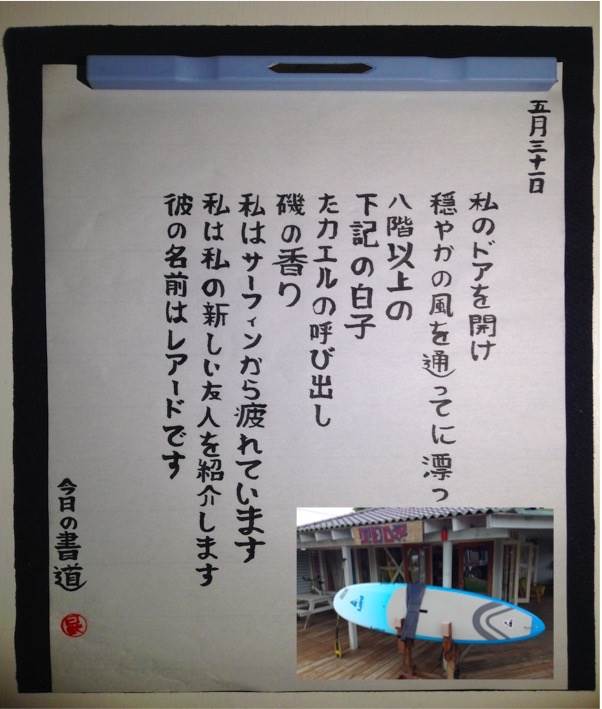 五月三十一日
私のドアを開け
穏やかの風を通ってに漂っ
八階以上の
下記の白子
たカエルの呼び出し
磯の香り
私はサーフィンから疲れています
私は私の新しい友人を紹介します
彼の名前はレアードです
今日の書道